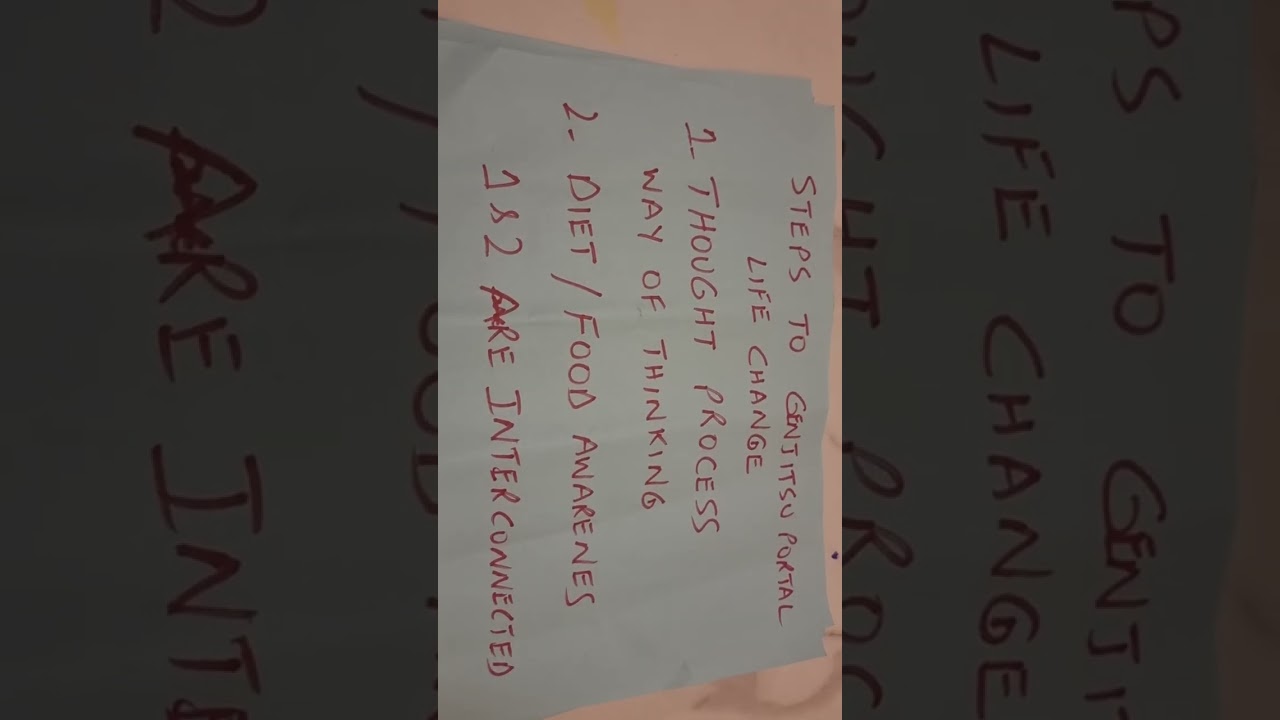 STEPS TO GENJITSU PORTAL
LIFE CHANGE
1- THOUGHT PROCESS
WAY OF THINKING
2- DIET / FOOD AWARENES
1 & 2 ARE INTERCONNECTED